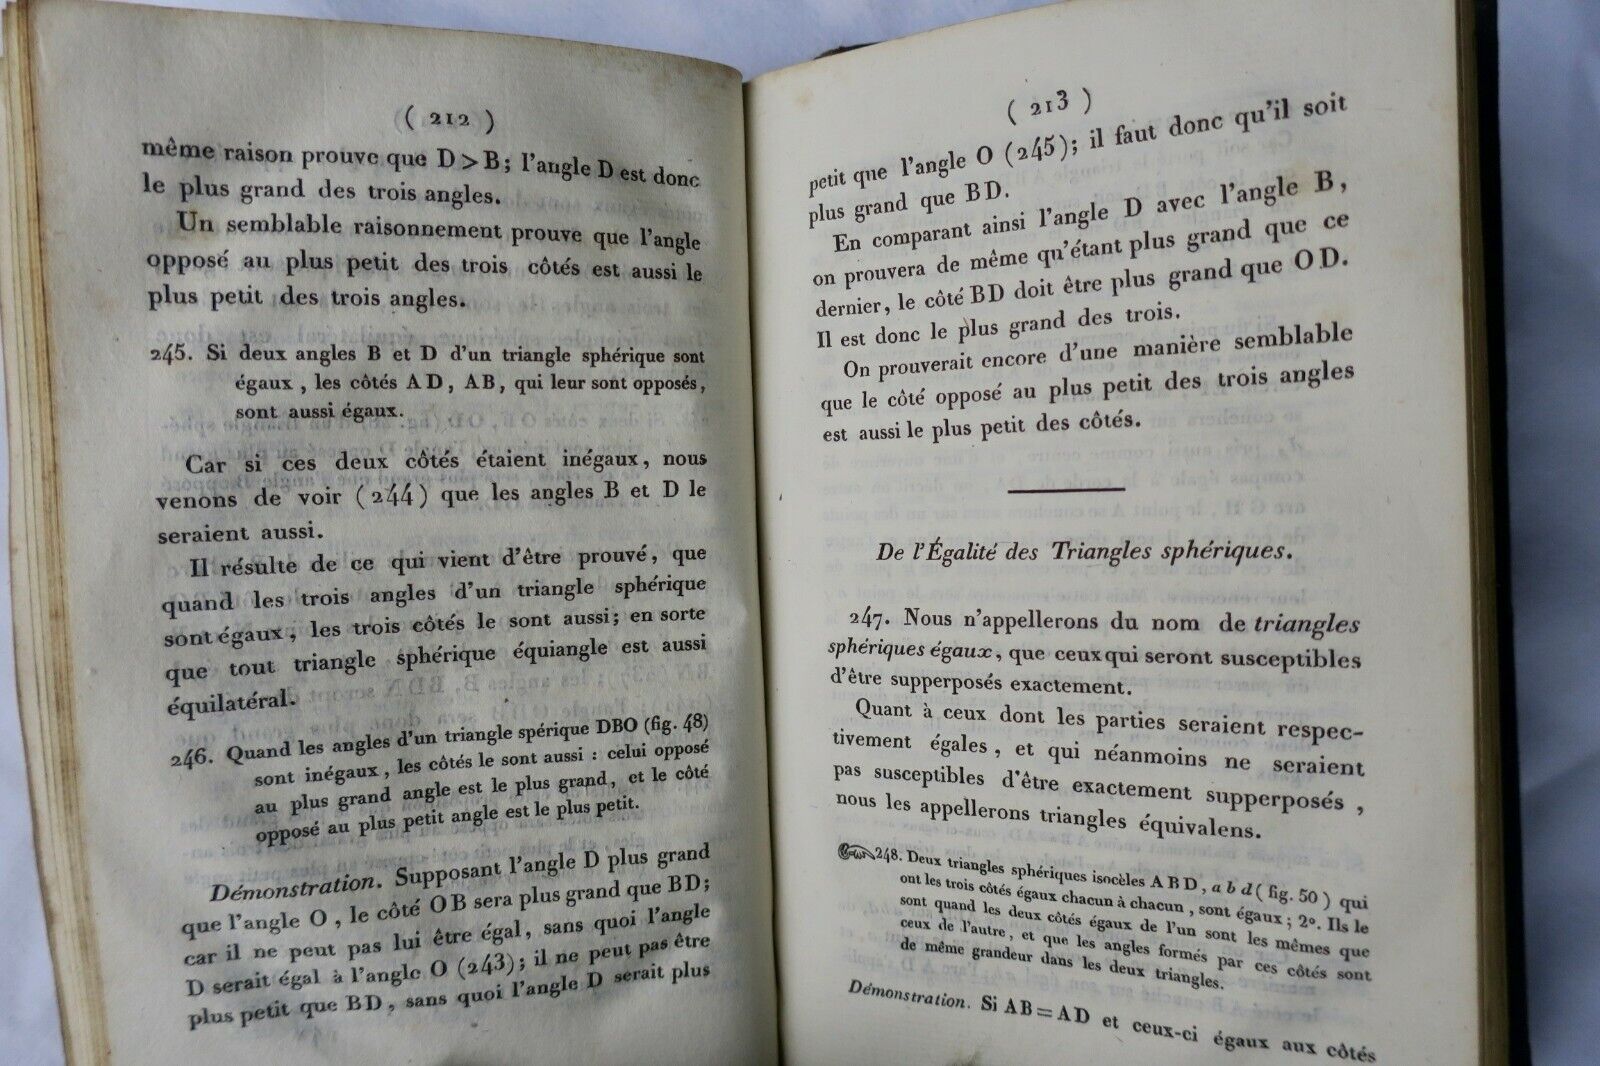 ( 212 )
même raison prouve que D > B; l'angle D est donc
le plus grand des trois angles.
Un semblable raisonnement prouve que l'angle
opposé au plus petit des trois côtés est aussi le
plus petit des trois angles.
245. Si deux angles B et D d'un triangle sphérique sont
égaux , les côtés AD, AB, qui leur sont opposés,
sont aussi égaux.
Car si ces deux côtés étaient inégaux, nous
venons de voir (244) que les angles B et D le
seraient aussi.
Il résulte de ce qui vient d'être prouvé, que
quand les trois angles d'un triangle sphérique
sont égaux, les trois côtés le sont aussi; en sorte
que tout triangle sphérique équiangle est aussi
équilatéral.
246. Quand les angles d'un triangle spérique DBO (fig. 48)
sont inégaux, les côtés le sont aussi : celui opposé
au plus grand angle est le plus grand, et le côté
opposé au plus petit angle est le plus petit.
Démonstration. Supposant l'angle D plus grand
que l'angle O , le côté OB sera plus grand que BD;
car il ne peut pas lui être égal, sans quoi l'angle
D serait égal à l'angle O (243); il ne peut pas être
plus petit que BD, sans quoi l'angle D serait plus
( 213 )
petit que l'angle O (245); il faut donc qu'il soit
plus grand que BD.
En comparant ainsi l'angle D avec l'angle B,
on prouvera de même qu'étant plus grand que ce
dernier, le côté BD doit être plus grand que OD.
Il est donc le plus grand des trois.
On prouverait encore d'une manière semblable
que le côté opposé au plus petit des trois angles
est aussi le plus petit des côtés.
De l'Égalité des Triangles sphériques.
247. Nous n'appellerons du nom de triangles
sphériques égaux, que ceux qui seront susceptibles
d'être supperposés exactement.
Quant à ceux dont les parties seraient respec-
tivement égales, et qui néanmoins ne seraient
pas susceptibles d'être exactement supperposés ,
nous les appellerons triangles équivalens.
248. Deux triangles sphériques isocèles ABD, a b d ( fig. 50 ) qui
ont les trois côtés égaux chacun à chacun , sont égaux ; 2°. Ils le
sont quand les deux côtés égaux de l'un sont les mêmes que
ceux de l'autre, et que les angles formés par ces côtés sont
de même grandeur dans les deux triangles.
Démonstration. Si AB=AD et ceux-ci égaux aux côtés